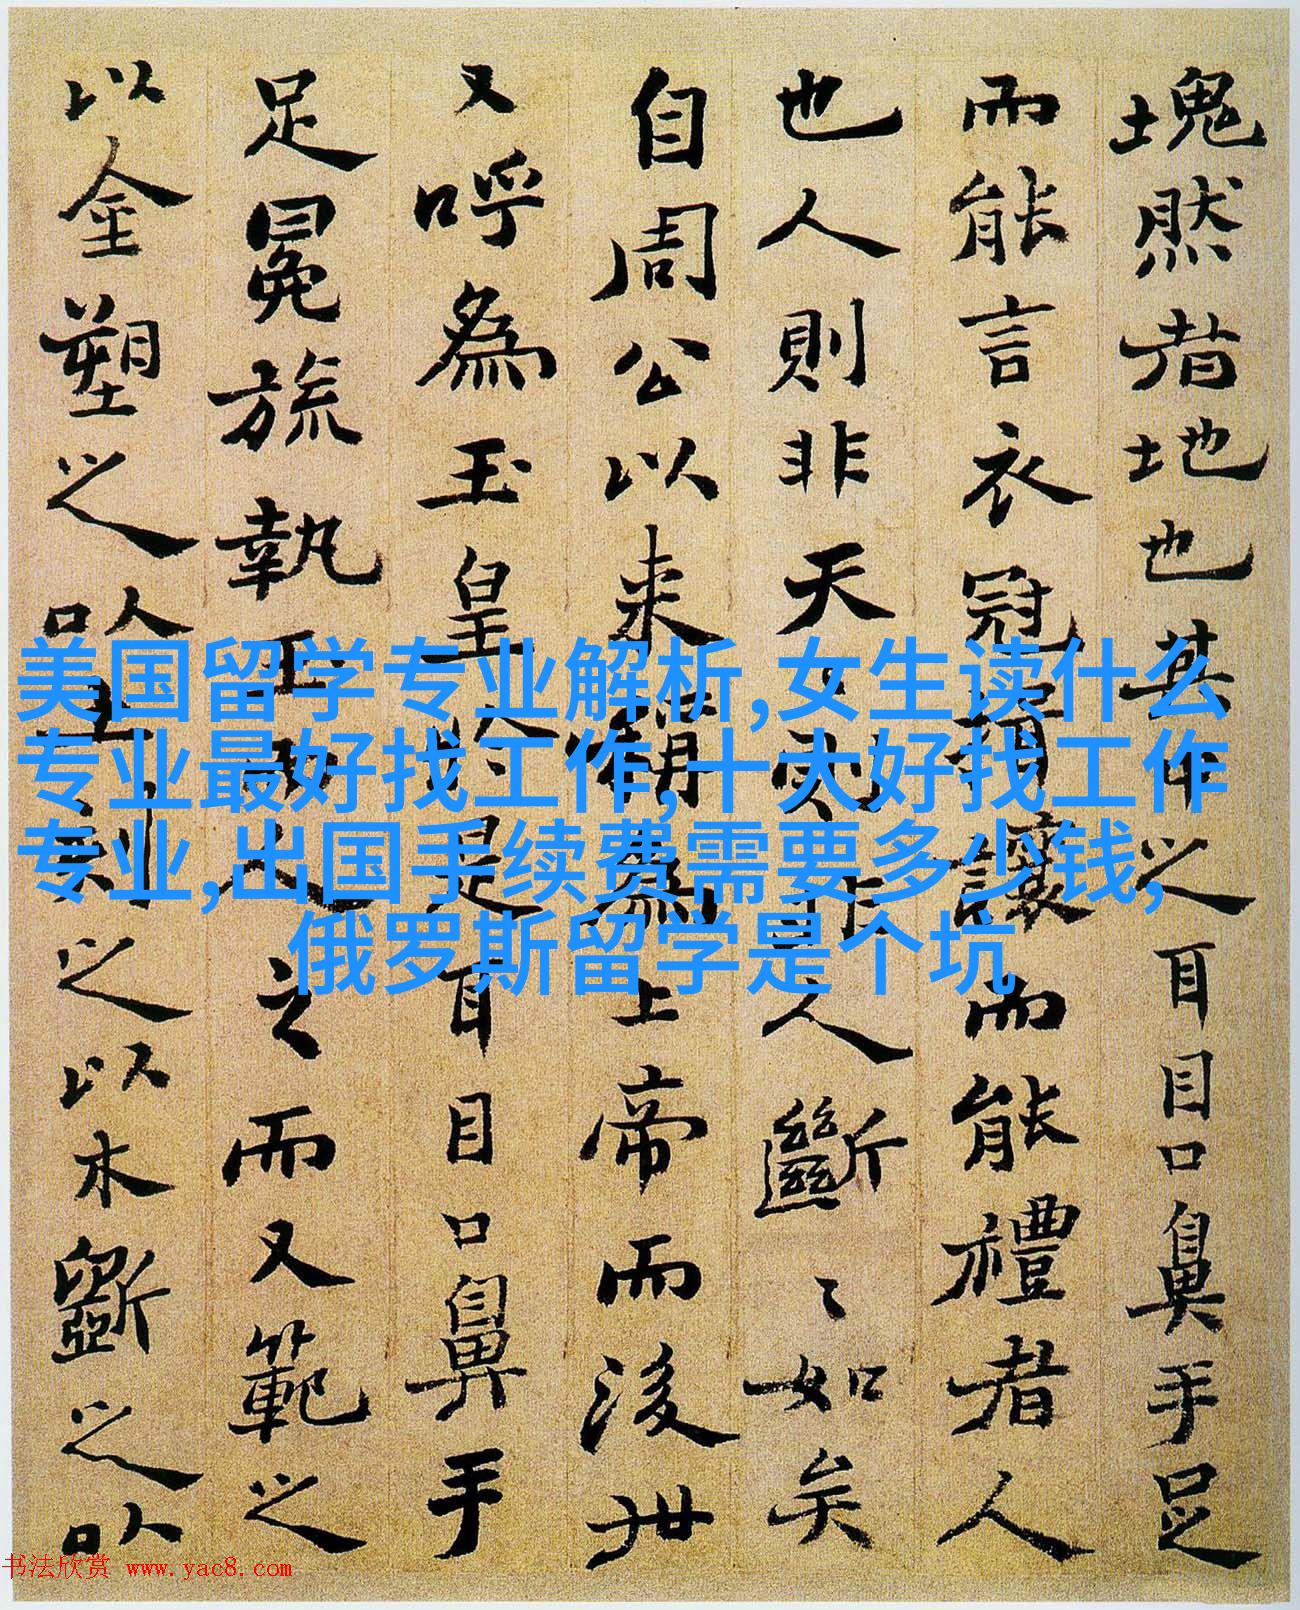 塊然者地也其体之耳目口鼻手足
而能言衣冠揖讓而能禮者人
也人則非天〻則非人斷〻如矣
自周公以來稱為上帝而後世
又呼為玉皇於是耳目口鼻手
足冕旒執玉而人之而又範之
以金塑之以土刻之以木斲之以
美国留学专业解析,女生读什么
专业最好找工作,十大好找工作
专业,出国手续费需要多少钱,
俄罗斯留学是个坑
书法欣赏 www.yac8.com